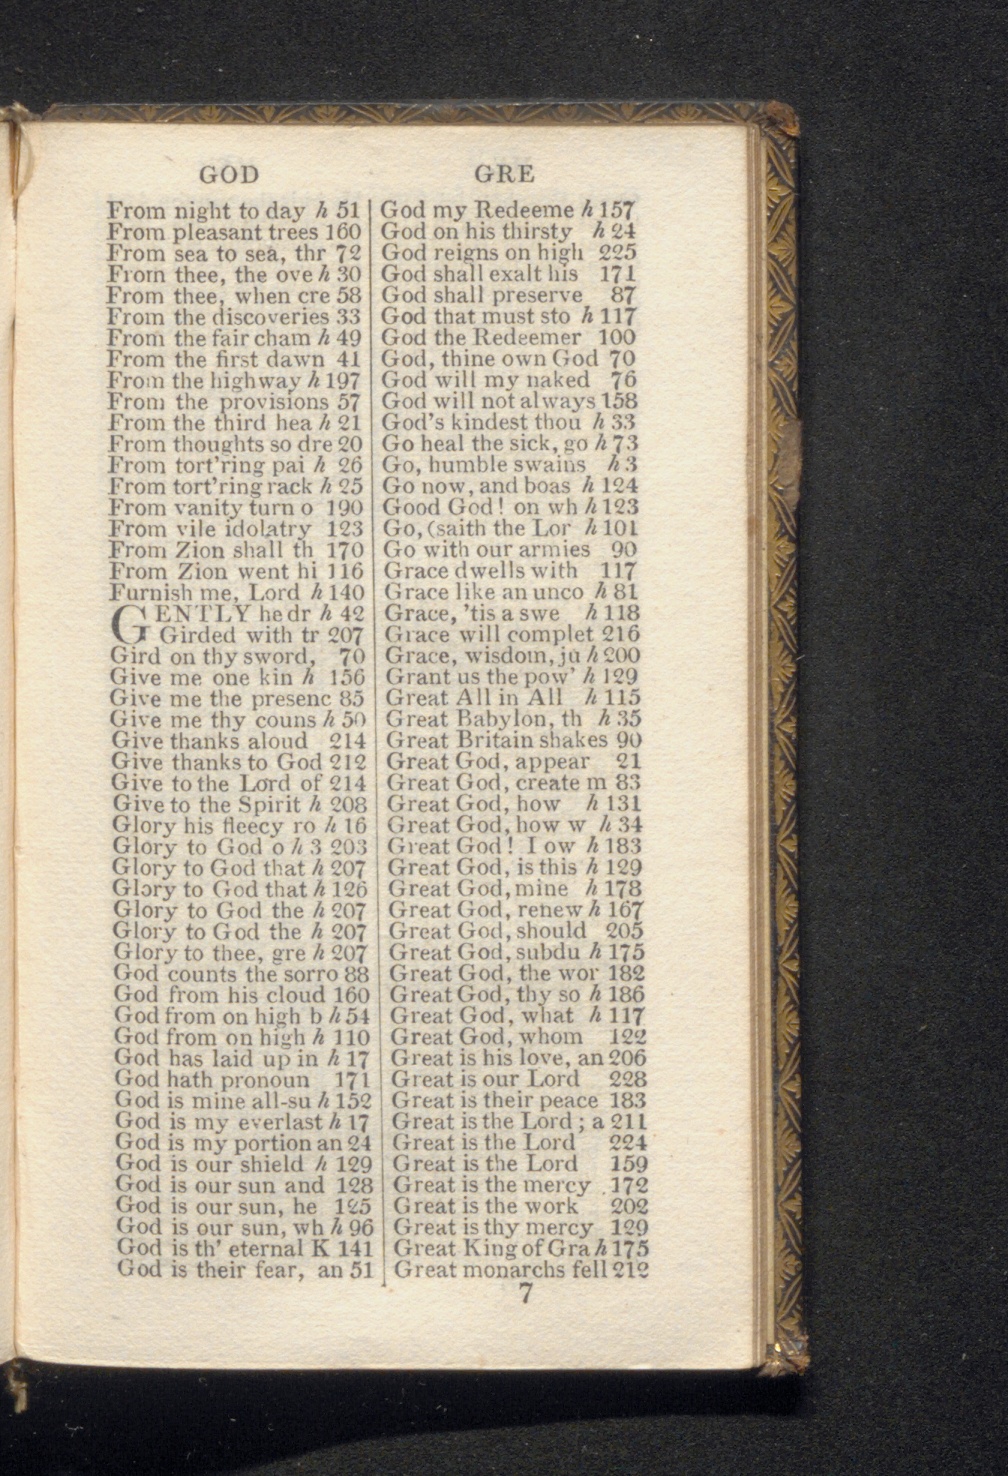 GOD
From night to day h 51
From pleasant trees 160
From sea to sea, thr 72
From thee, the ove h 30
From thee, when cre 58
From the discoveries 33
From the fair cham h 49
From the first dawn 41
From the highway h 197
From the provisions 57
From the third hea h 21
From thoughts so dre 20
From tort'ring pai h 26
From tort'ring rack h 25
From vanity turn o 190
From vile idolatry 123
From Zion shall th 170
From Zion went hi 116
Furnish me, Lord h 140
GENTLY he dr h 42
Girded with tr 207
Gird on thy sword, 70
Give me one kin h 156
Give me the presenc 85
Give me thy couns h 50
Give thanks aloud 214
Give thanks to God 212
Give to the Lord of 214
Give to the Spirit h 208
Glory his fleecy ro h 16
Glory to God o h 3 203
Glory to God that h 207
Glory to God that h 126
Glory to God the h 207
Glory to God the h 207
Glory to thee, gre h 207
God counts the sorro 88
God from his cloud 160
God from on high b h 54
God from on high h 110
God has laid up in h 17
God hath pronoun 171
God is mine all-su h 152
God is my everlast h 17
God is my portion an 24
God is our shield h 129
God is our sun and 128
God is our sun, he 125
God is our sun, wh h 96
God is th' eternal K 141
God is their fear, an 51
GRE
God my Redeeme h 157
God on his thirsty h 24
God reigns on high 225
God shall exalt his 171
God shall preserve 87
God that must sto h 117
God the Redeemer 100
God, thine own God 70
God will my naked 76
God will not always 158
God's kindest thou h 33
Go heal the sick, go h 73
Go, humble swains h 3
Go now, and boas h 124
Good God! on wh h 123
Go, (saith the Lor h 101
Go with our armies 90
Grace dwells with 117
Grace like an unco h 81
Grace, 'tis a swe h 118
Grace will complet 216
Grace, wisdom, ju h 200
Grant us the pow' h 129
Great All in All h 115
Great Babylon, th h 35
Great Britain shakes 90
Great God, appear 21
Great God, create m 83
Great God, how h 131
Great God, how w h 34
Great God! I ow h 183
Great God, is this h 129
Great God, mine h 178
Great God, renew h 167
Great God, should 205
Great God, subdu h 175
Great God, the wor 182
Great God, thy so h 186
Great God, what h 117
Great God, whom 122
Great is his love, an 206
Great is our Lord 228
Great is their peace 183
Great is the Lord; a 211
Great is the Lord 224
Great is the Lord 159
Great is the mercy 172
Great is the work 202
Great is thy mercy 129
Great King of Gra h 175
Great monarchs fell 212
7